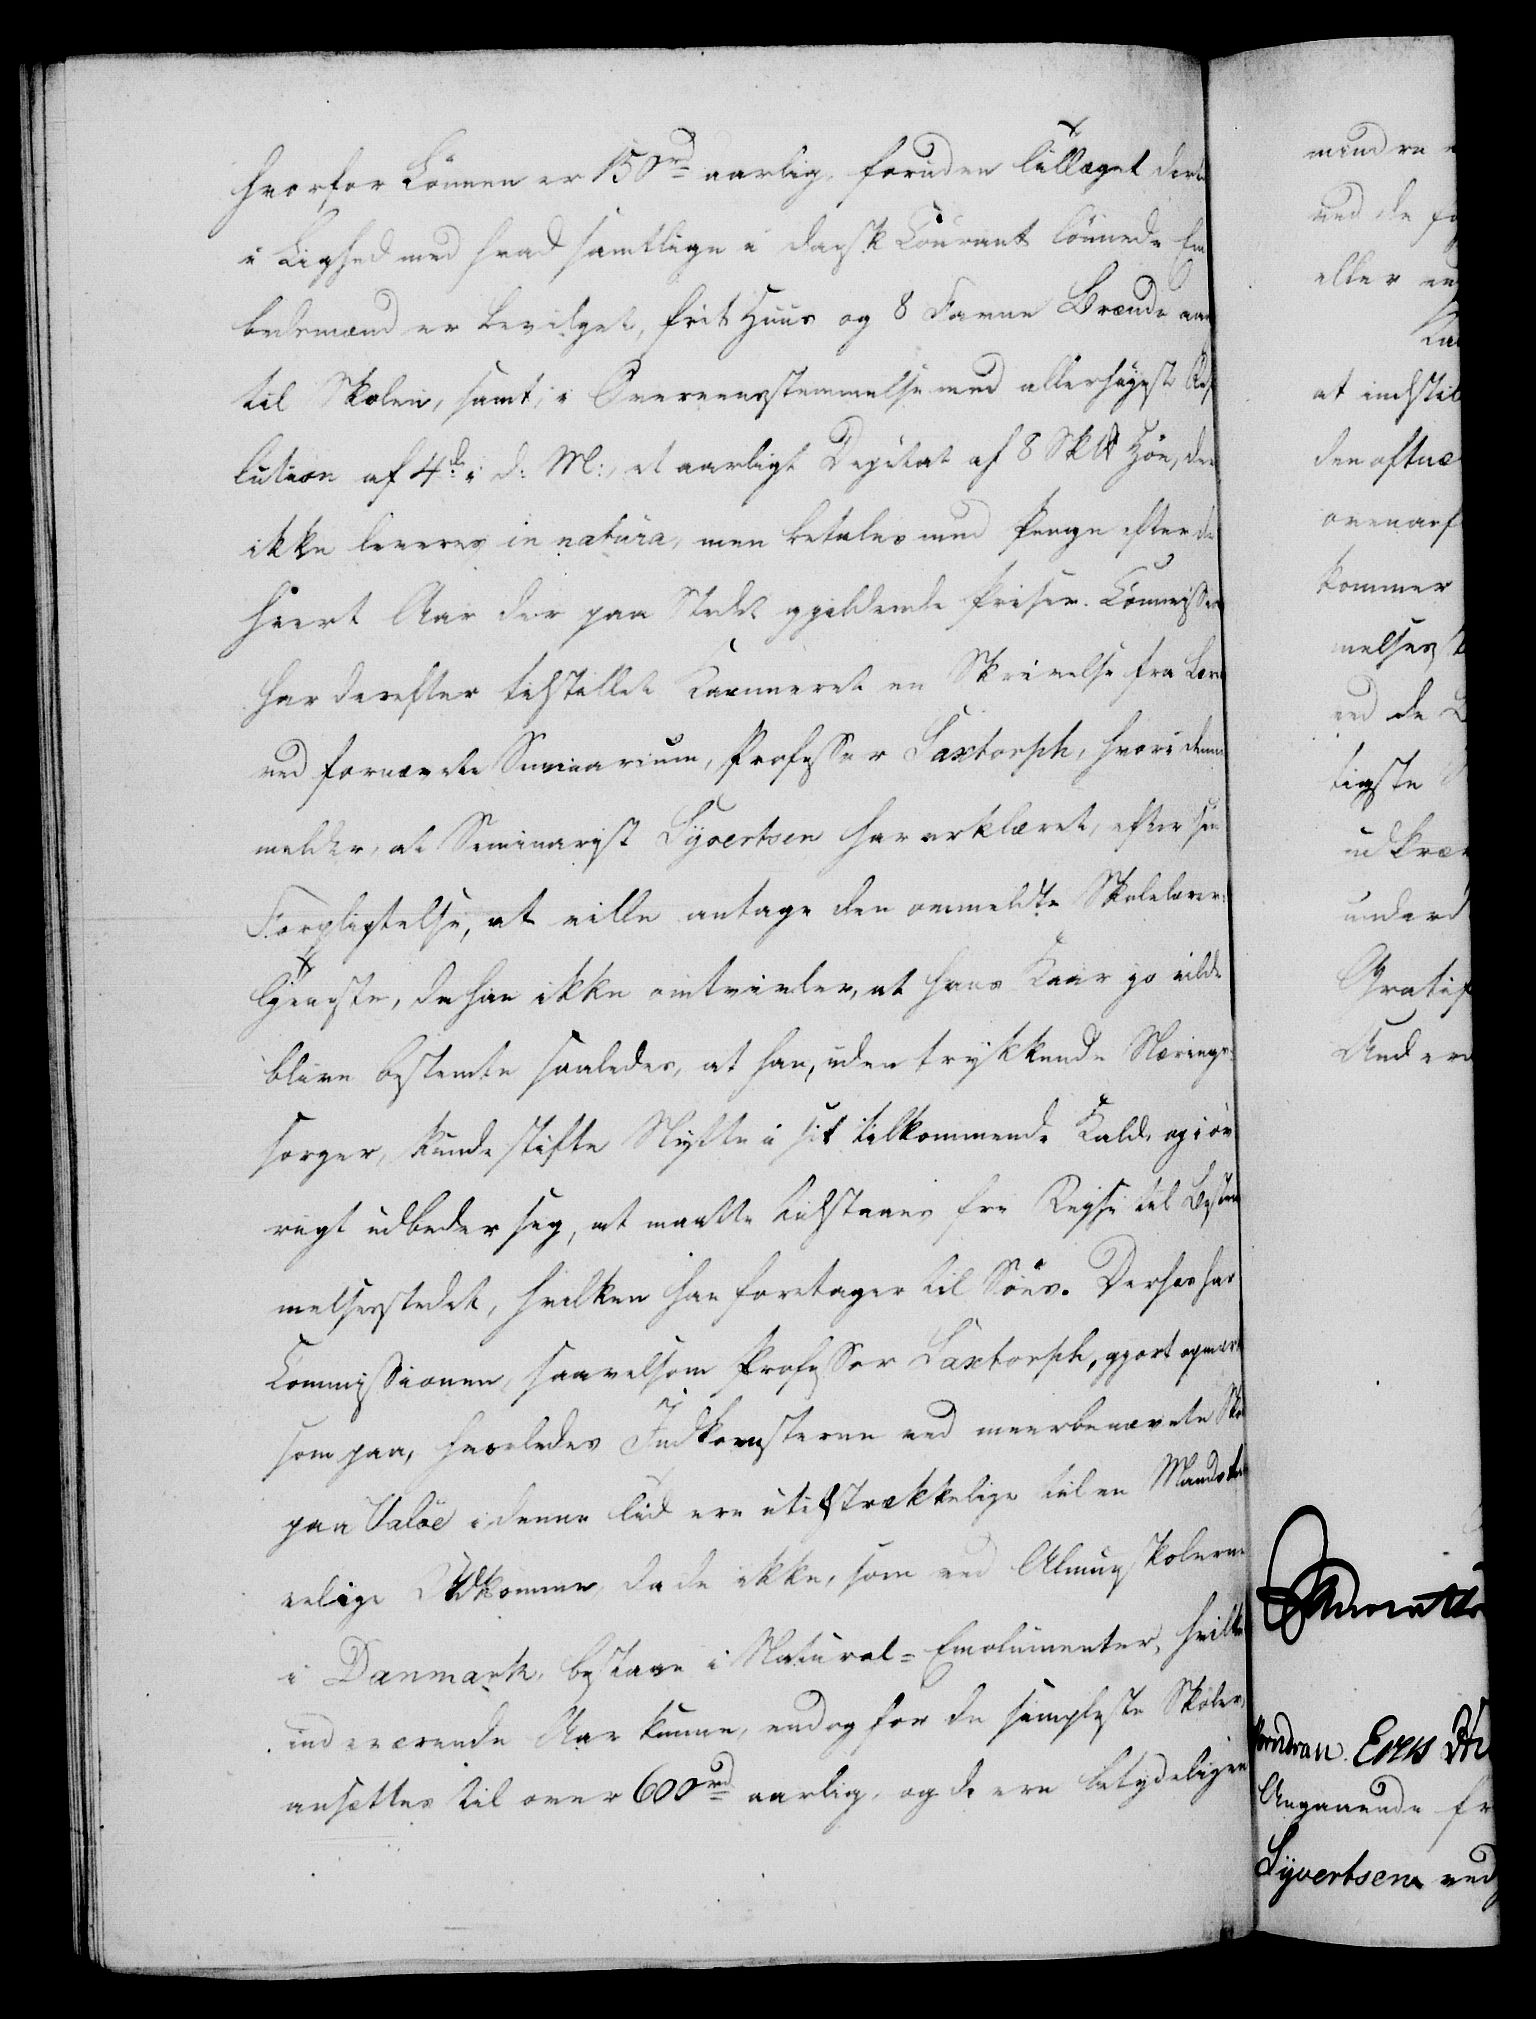 hvorfor Lønnen er 150 rd aarlig, foruden Tillæget dertil
i Lighed med hvad samtlige i dansk Courant lønnede Em
bedsmænd er bevilget, frit Huus og 8 Favne Brænde aar
til Skolen, samt, i Overeensstemmelse med allerhøyeste Reso
lution af 4de i d: M:, et aarligt Deputat af 8 Høe, der
ikke leveres in natura, men betales med Penge efter de
hvert Aar der paa Stedet gieldende Priser. Commissionen
har derefter tilstillet Kammeret en Skrivelse fra Lærer
ved fornævnte Seminarium, Professor Saxtorph, hvori denne
melder, at Seminarist Syvertsen har erklæret, efter sin
Forpligtelse, at ville antage den ommeldte Skolelærer-
tjeneste, da han ikke omtvivler, at hans Kaar jo vilde
blive bestemte saaledes, at han, uden trykkende Nærings-
sorger, kunde stifte Nytte i sit tilkommende Kald, og i øv
rigt udbeder sig, at maatte tilstaaes frie Reyse til Bestem
melsesstedet, hvilken han foretager til Søes. Derhos har
Commissionen, saavelsom Professor Saxtorph, gjort opmærk
som paa, hvorledes Indkomsterne ved meerbenævnte Skole
paa Valöe i denne Tid ere utilstrækkelige til en Mands tar
velige Udkomme, da de ikke, som ved Almueskolerne
i Danmark, bestaae i Natural-Emolumenter, hvilke
indeværende Aar kunne, endog for de simpleste Skoler,
ansættes til over 600 rd aarlig, og de ere betydeligen
mindre
ved de
eller
at indstil
ovenanf
kommer
melses
ved de
ligste
udkræ
underd
Gratif
Angaaende
Syvertsen ved